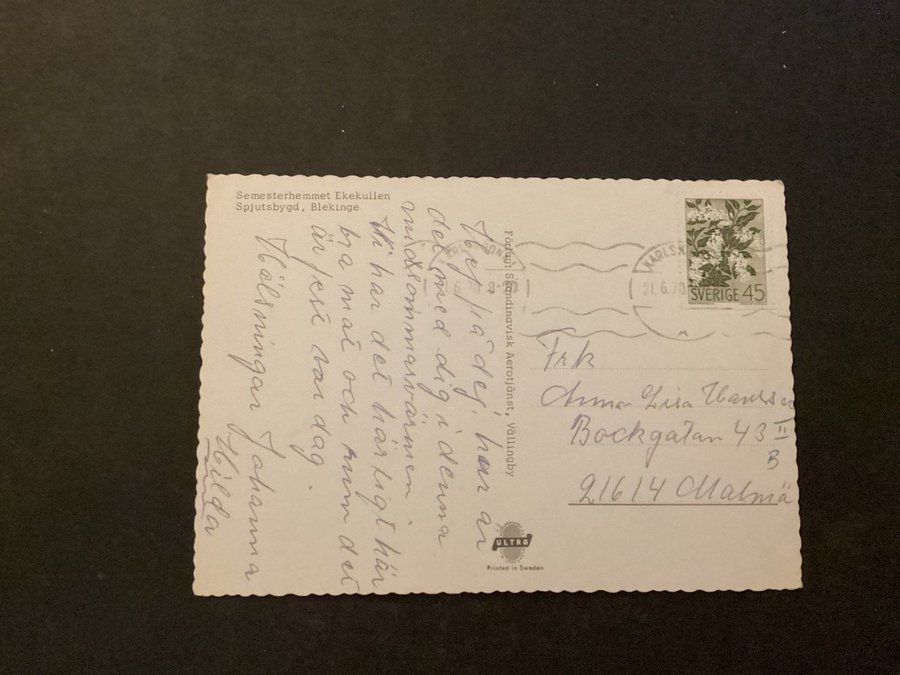 Semesterhemmet Ekekullen
Spjutsbygd, Blekinge
Hej på dej! hur är
det med dig i denna
midsommarvärmen
Vi har det härligt här
bra mat och rum det
är fest var dag.
Hälsningar Johanna
Hilda
Förlag: Skandinavisk Aerotjänst, Vällingby
21.6.70
SVERIGE 45
Frk
Anna Lisa
Bockgatan 43 II
B
21614 Malmö
ULTRA
Printed in Sweden